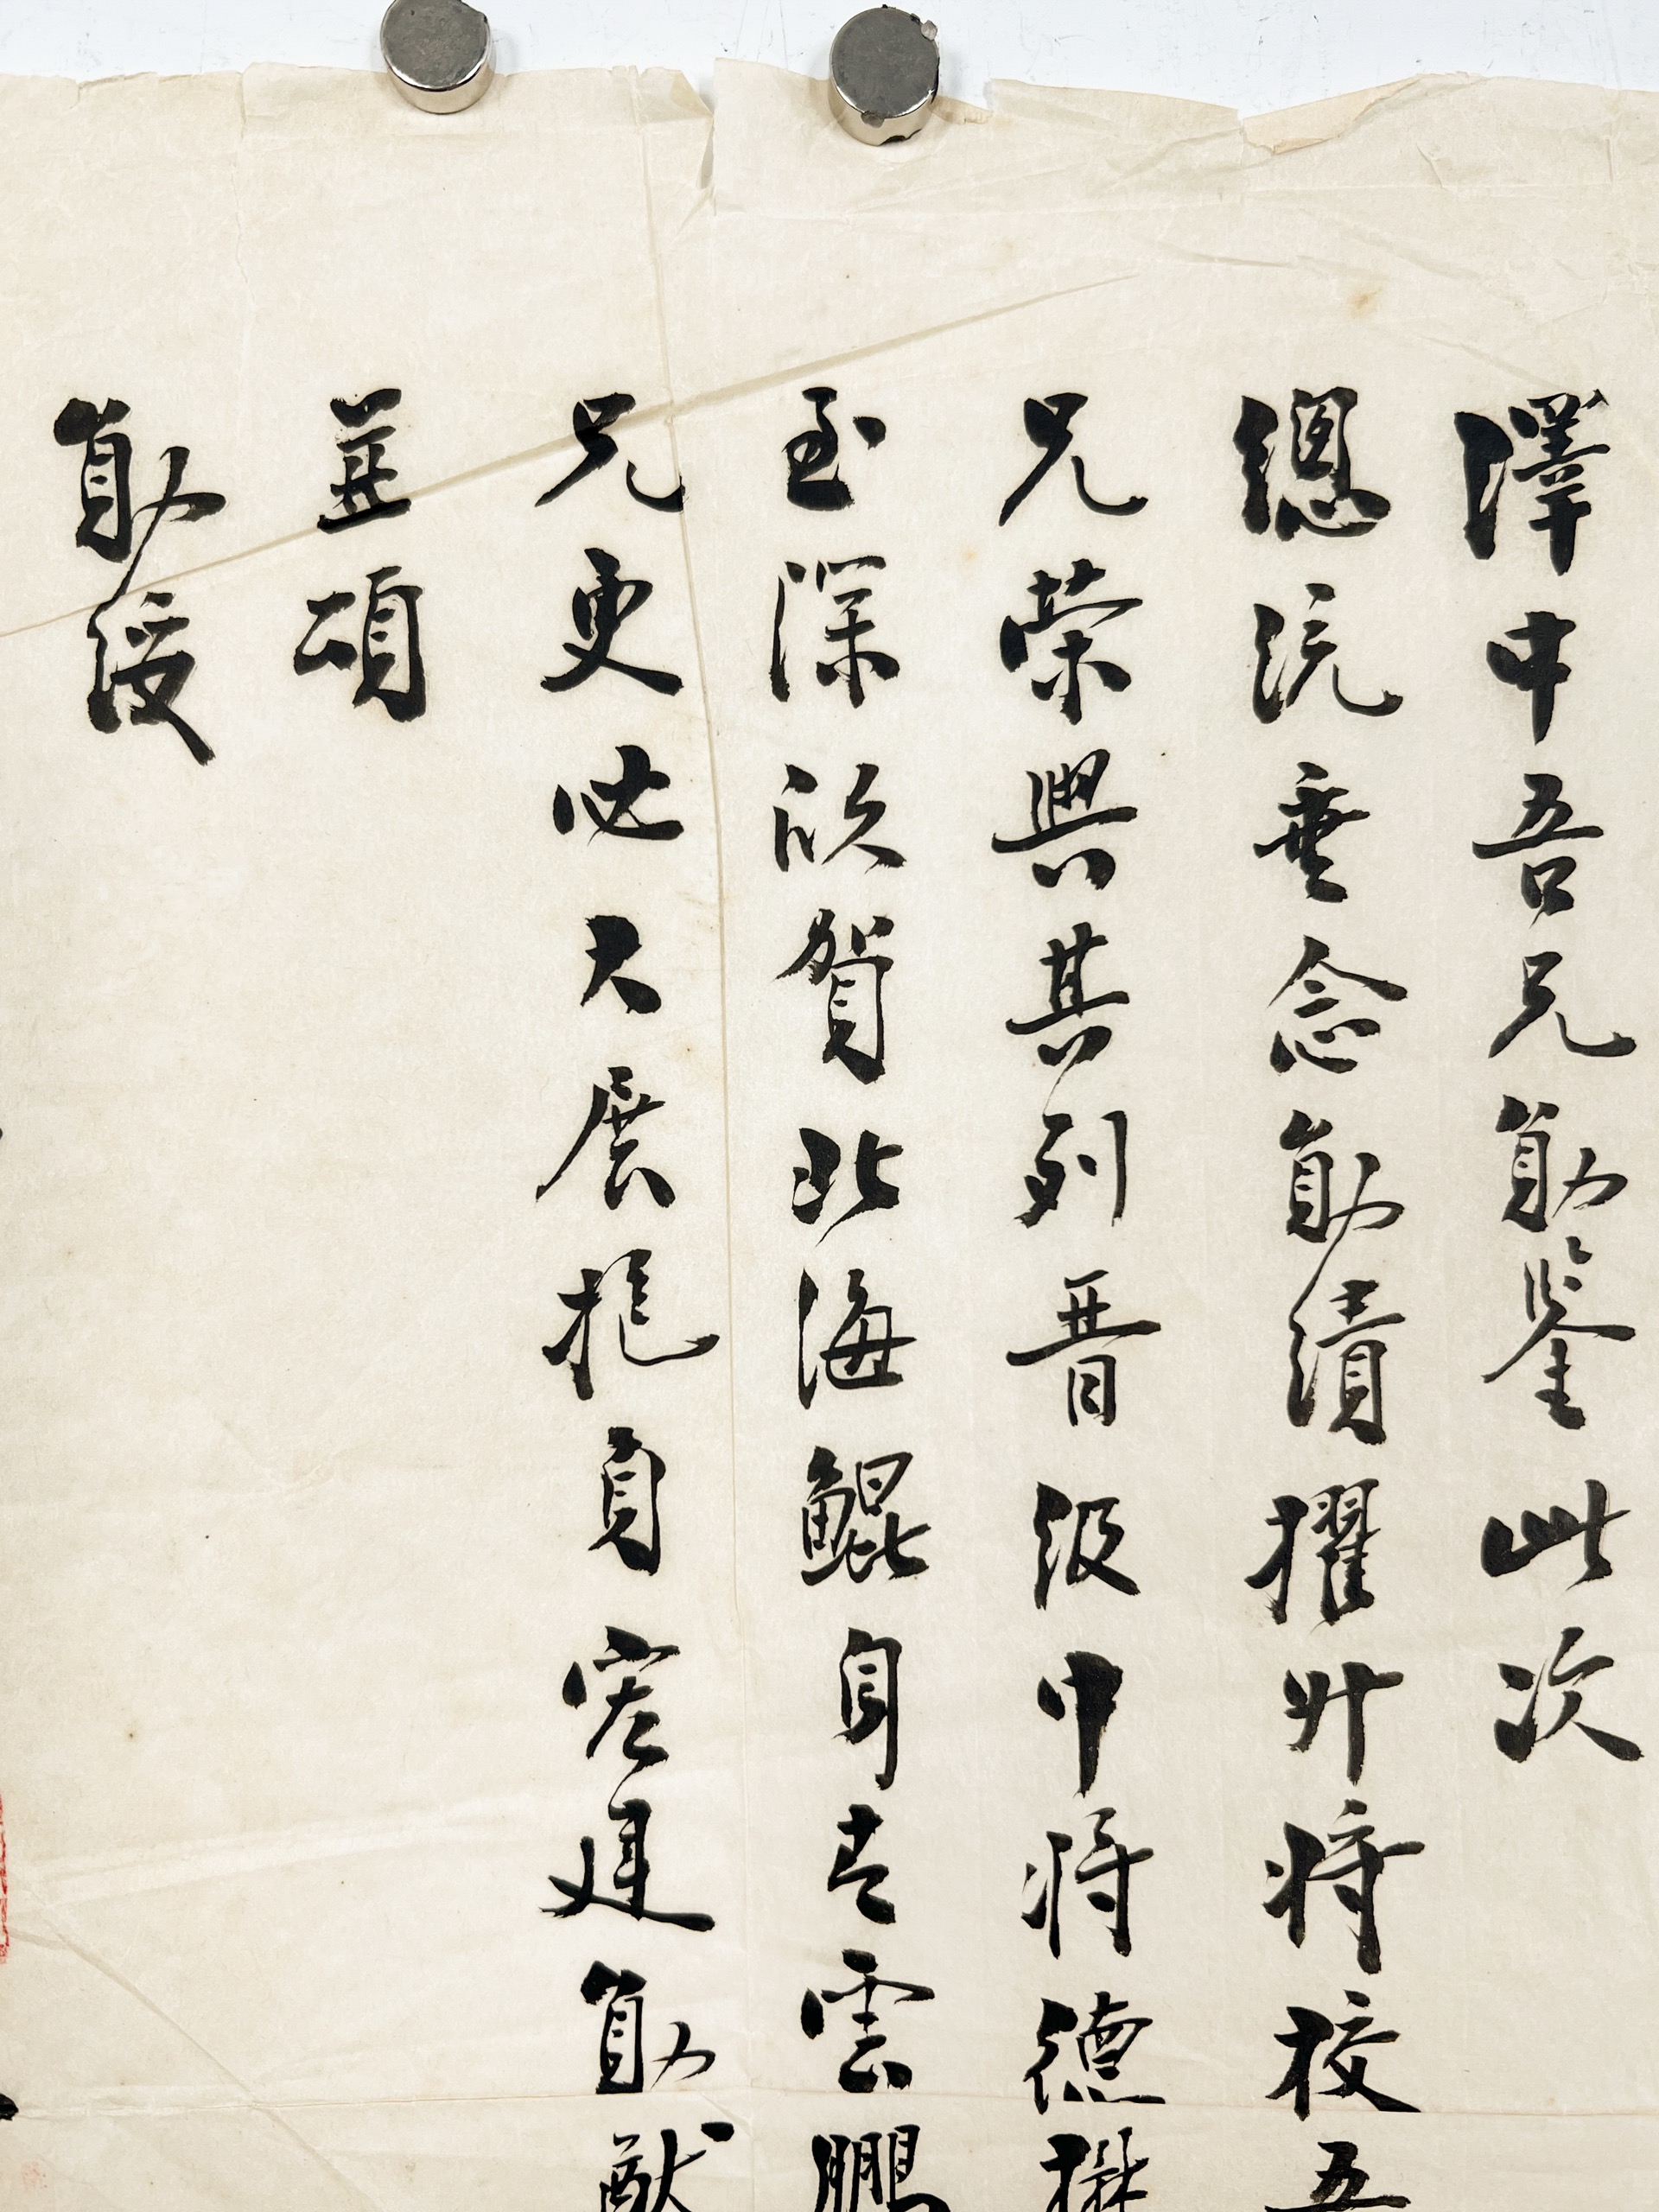 澤中吾兄勛鑒此次
總統垂念勛績擢升將校五
兄榮與其列晉級中將德
至深欣賀北海鯤身青雲鵬
兄更必大展抱負宏建勛猷
並頌
勛綏